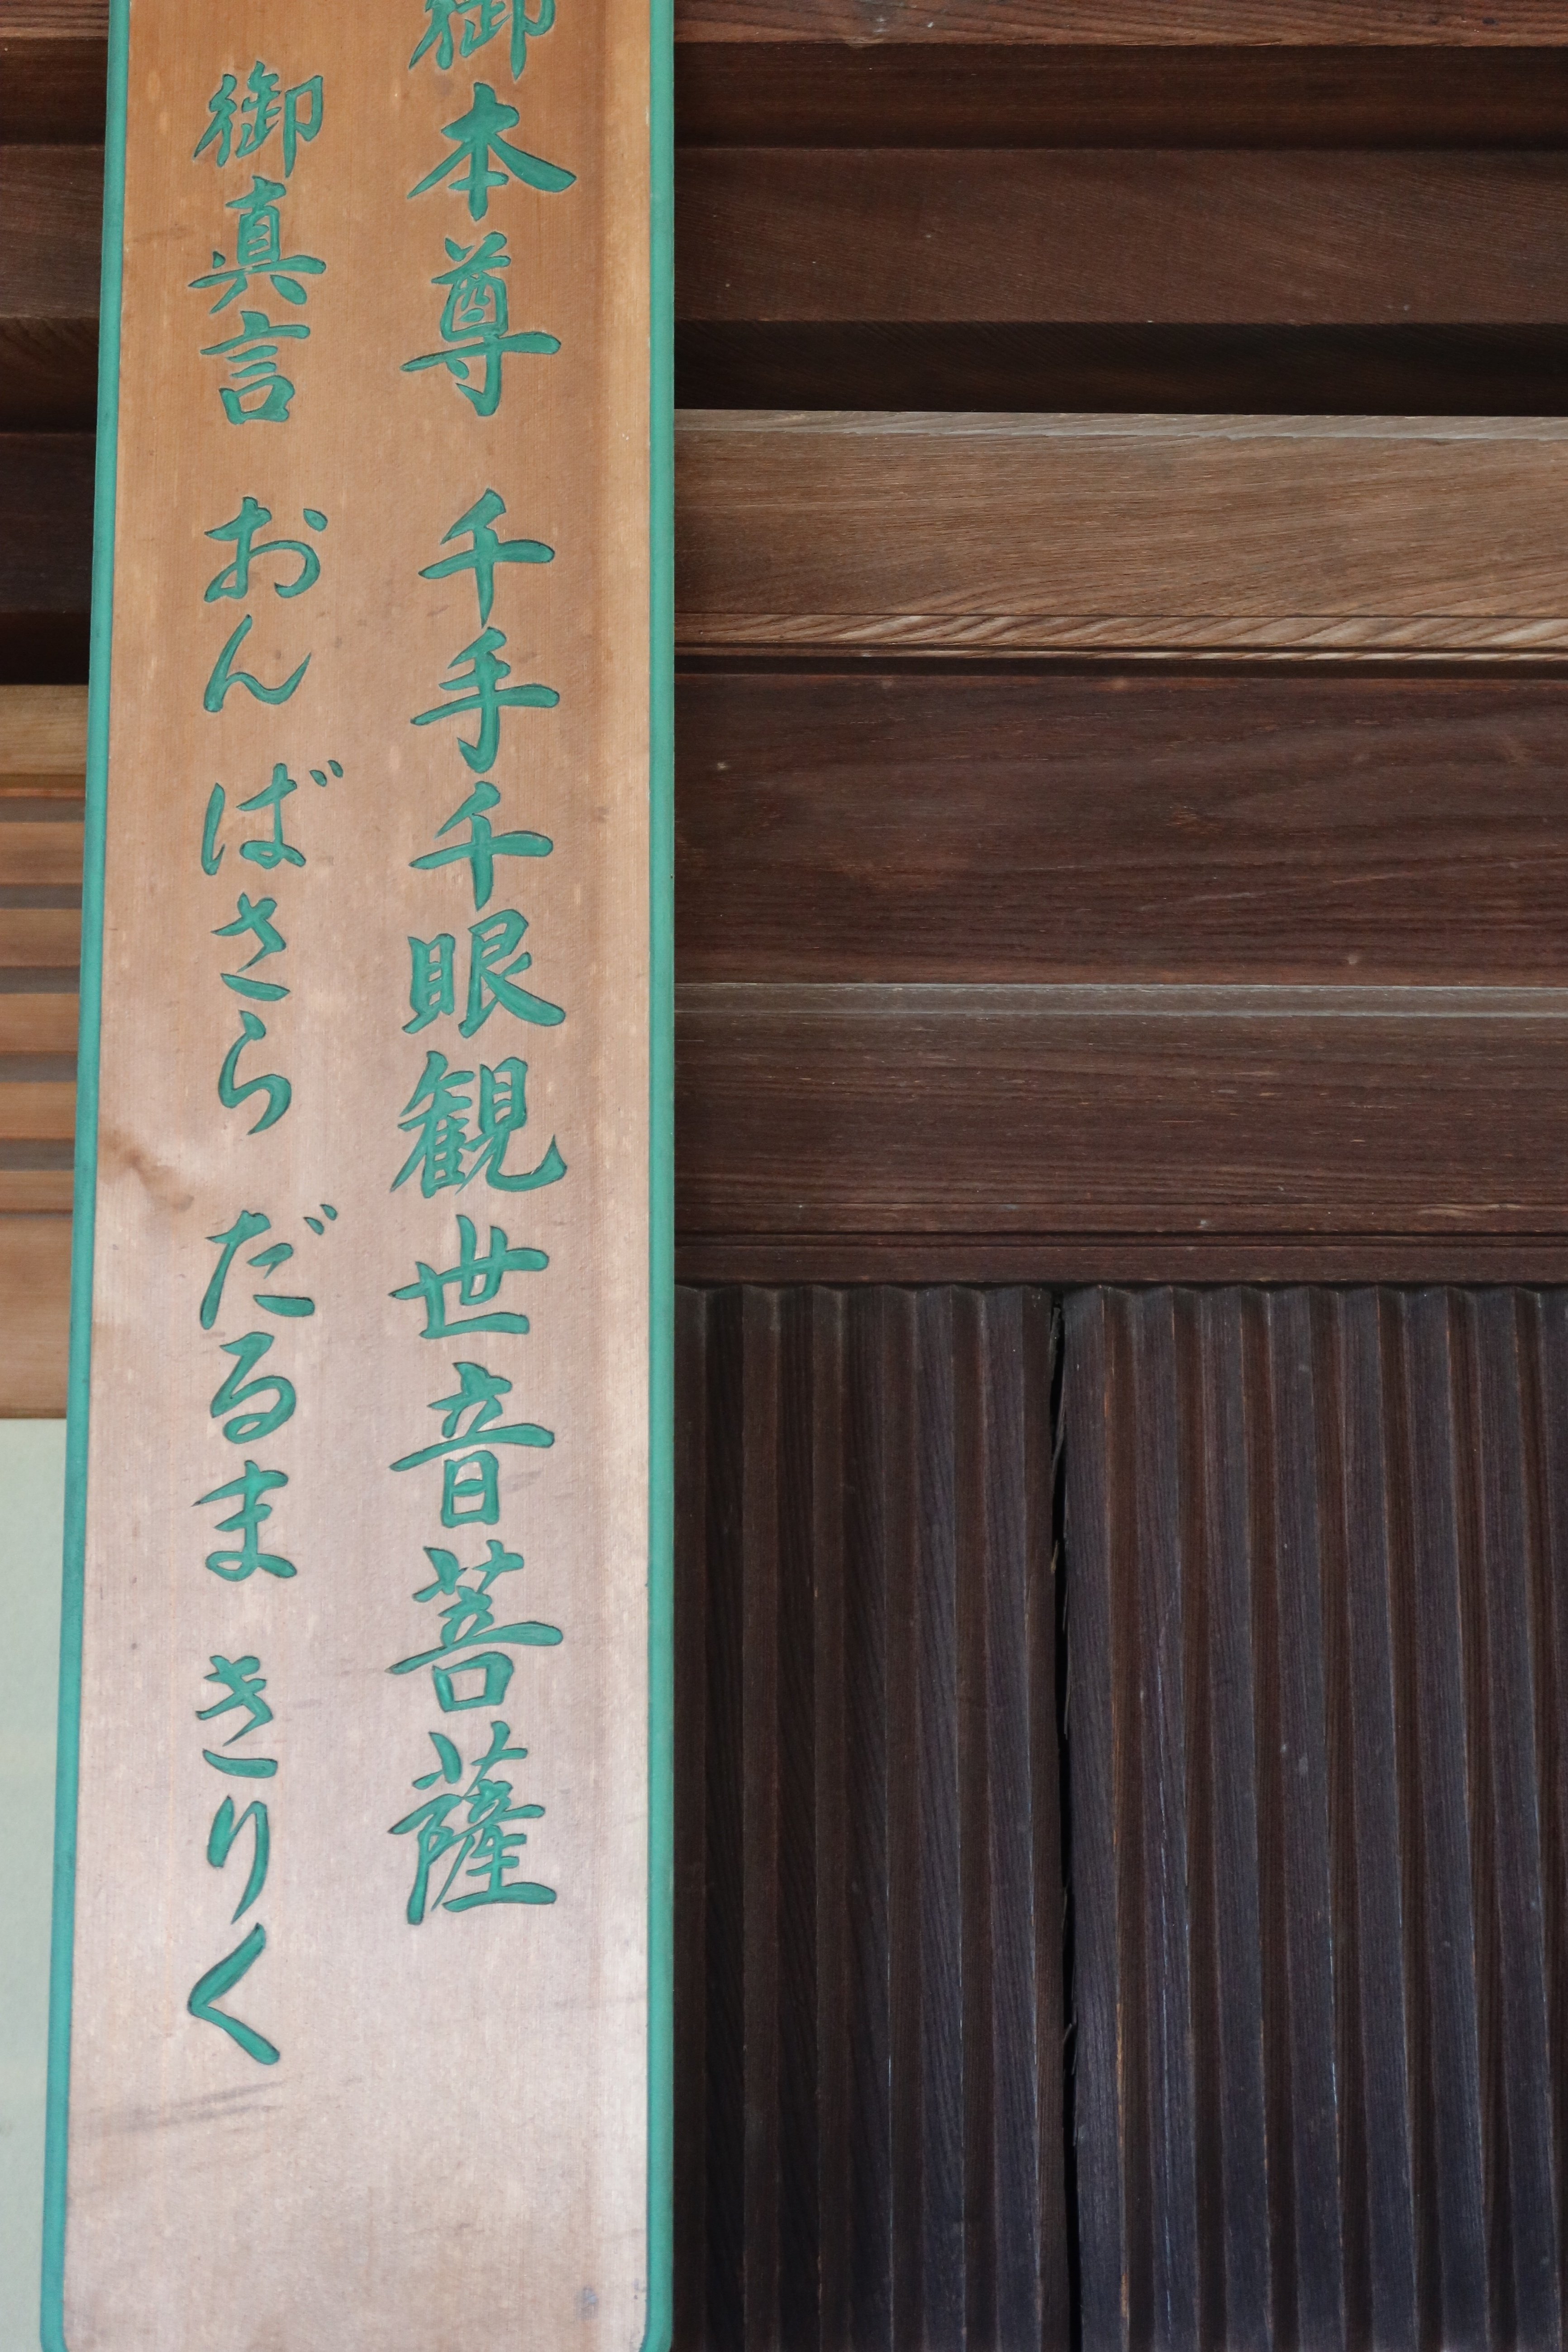 御本尊 千手千眼観世音菩薩
御真言 おん ばさら だるま きりく